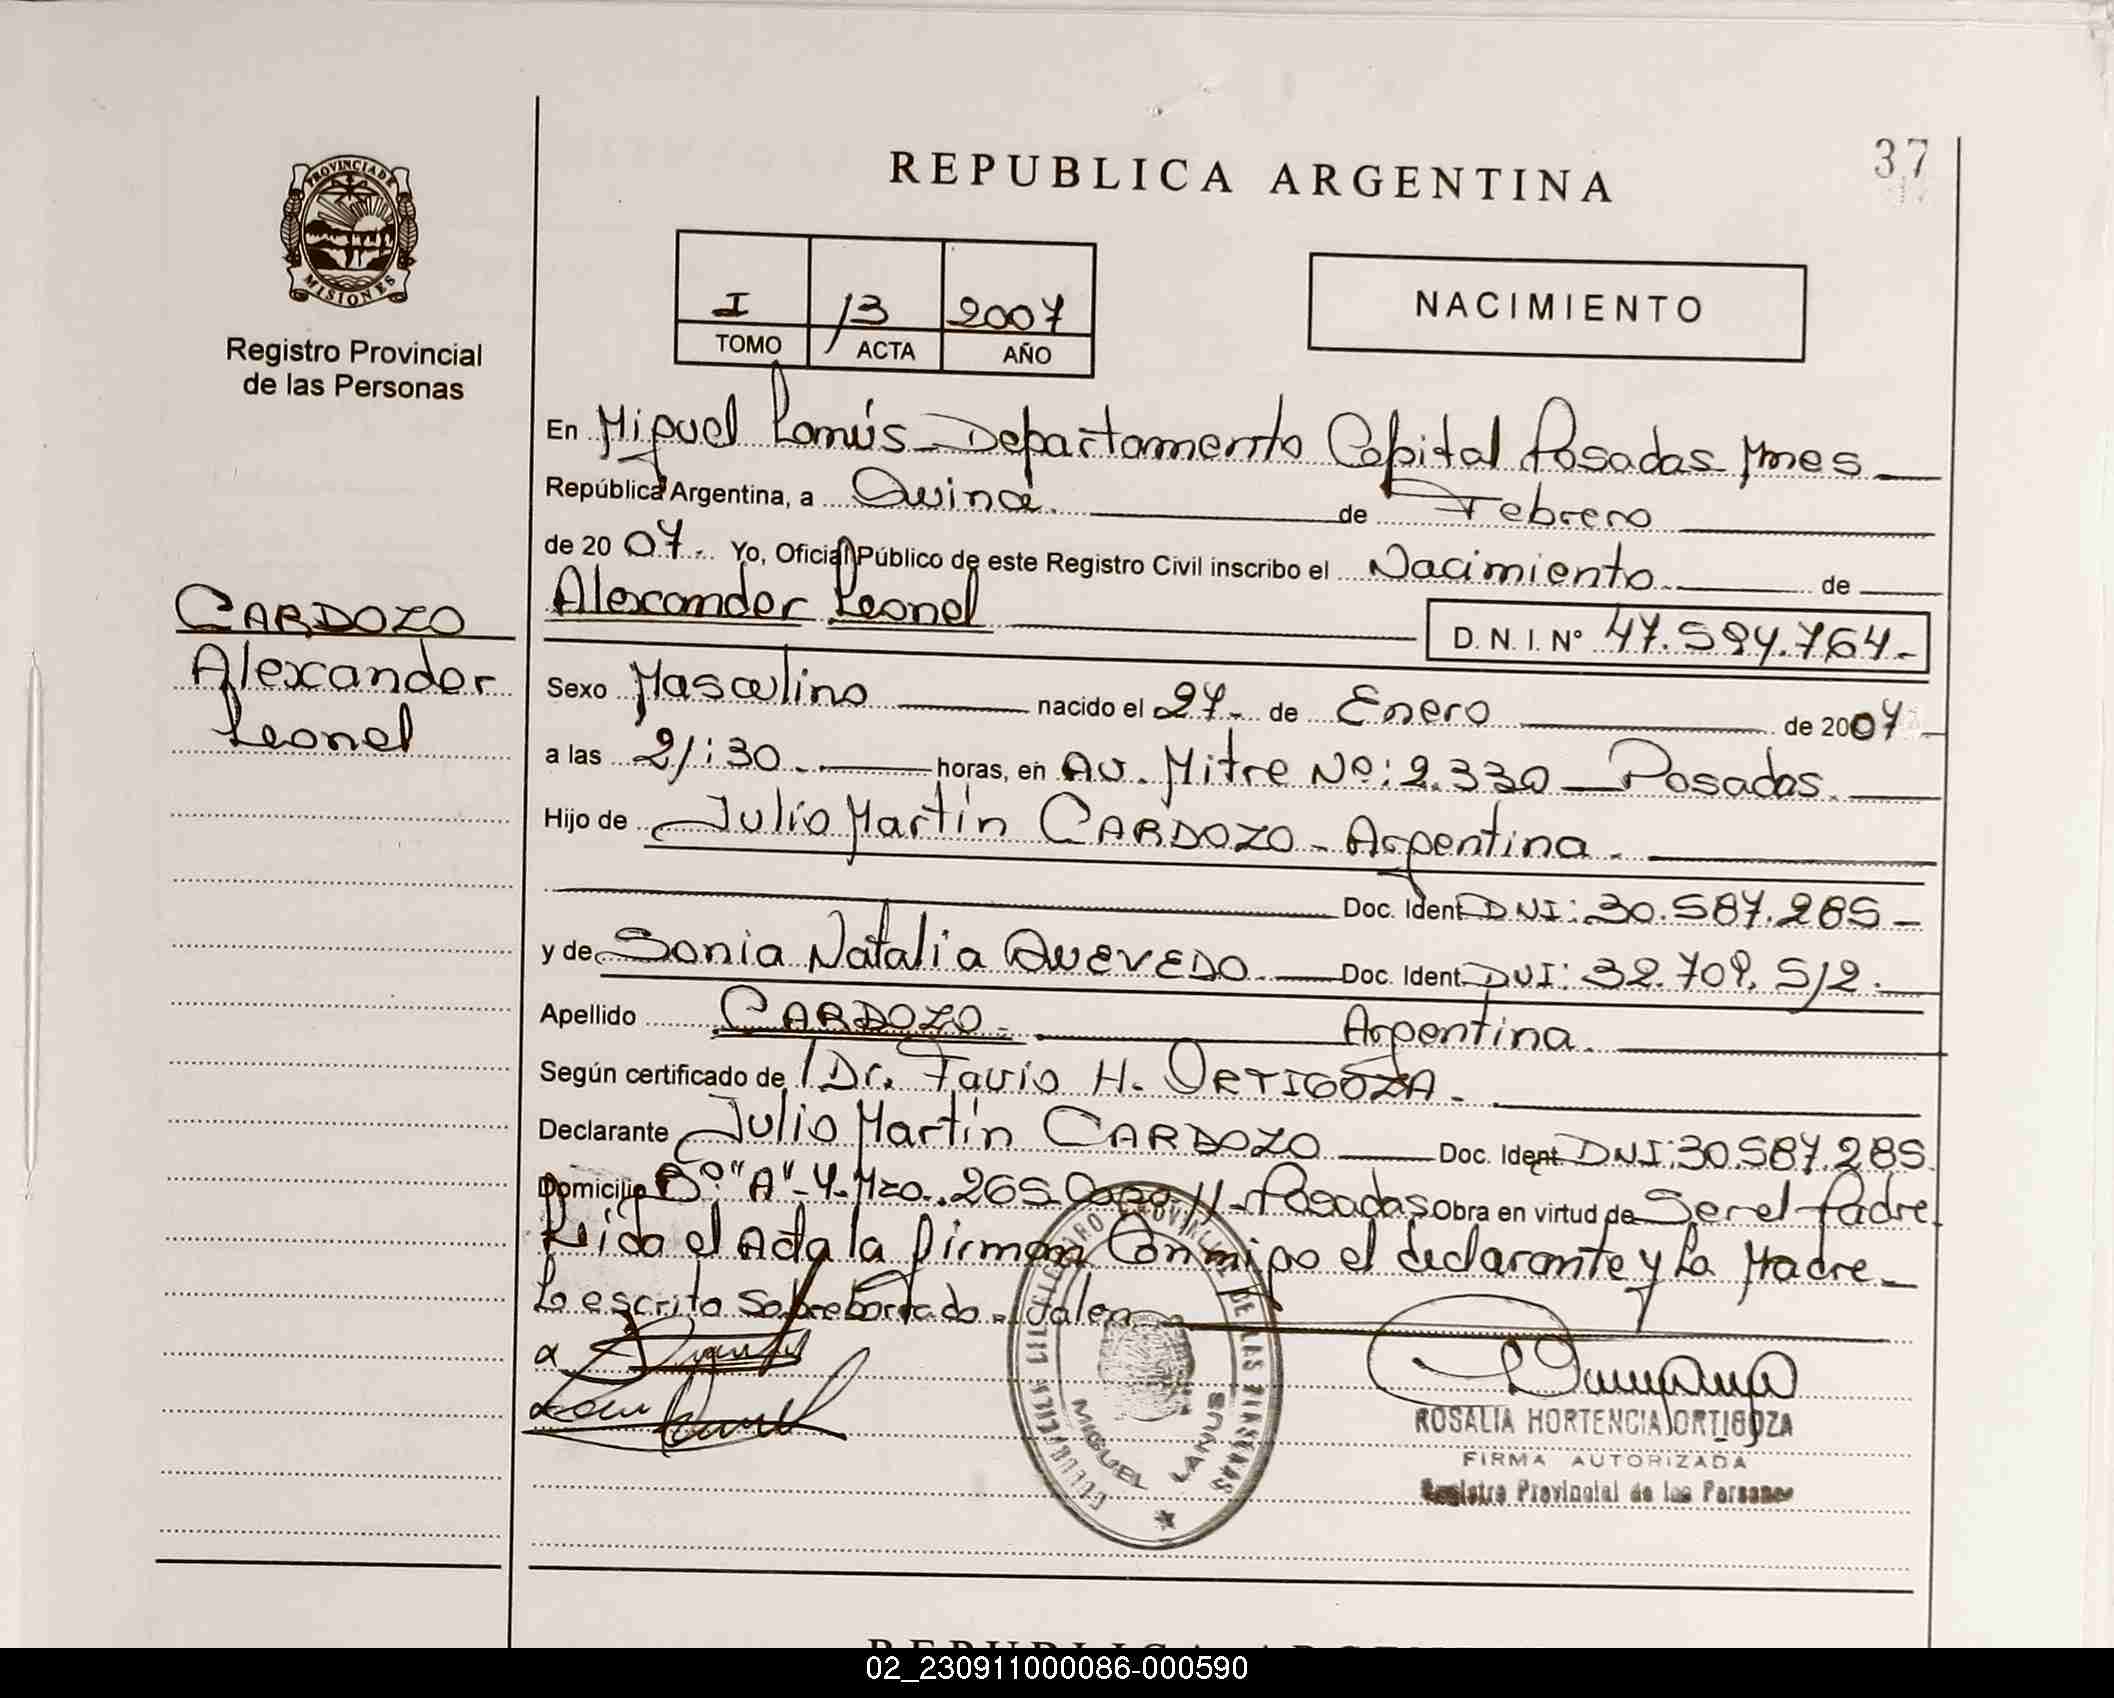 REPUBLICA ARGENTINA
37
PROVINCIA DE
MISIONES
Registro Provincial
de las Personas
I 13 2007
TOMO ACTA AÑO
NACIMIENTO
En Miguel Lanús - Departamento Capital Posadas Mnes
República Argentina, a Quince de Febrero
de 2007. Yo, Oficial Público de este Registro Civil inscribo el Nacimiento de
Alexander Leonel
D. N. I. N° 47.594.764.-
CARDOZO
Alexander
Leonel
Sexo Masculino nacido el 27- de Enero de 2007
a las 21:30 horas, en Av. Mitre Nº: 2.330 - Posadas.
Hijo de Julio Martín CARDOZO - Argentina.
Doc. Ident DNI: 30.587.285 -
y de Sonia Natalia QUEVEDO Doc. Ident. DNI: 32.709.512.
Apellido CARDOZO - Argentina.
Según certificado de Dr. Favio H. ORTIGOZA.
Declarante Julio Martín CARDOZO Doc. Ident DNI: 30.587.285
Domicilio Bº "A"-4-Mzo. 265 Casa 11-Posadas Obra en virtud de Ser el Padre
Leida el Acta la firman Conmigo el declarante y la Madre -
Lo escrito Sobrebordado - Valen
MIGUEL LANUS
ROSALIA HORTENCIA ORTIGOZA
FIRMA AUTORIZADA
Registro Provincial de las Personas
02_230911000086-000590